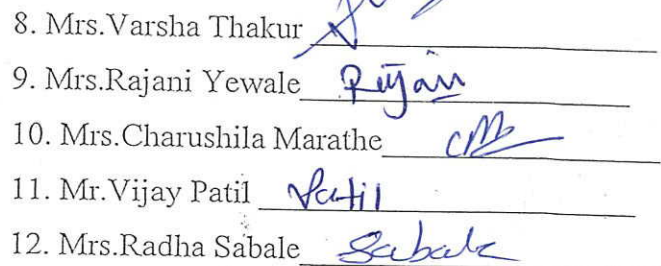 8. Mrs.Varsha Thakur
9. Mrs.Rajani Yewale Rajani
10. Mrs.Charushila Marathe
11. Mr.Vijay Patil Patil
12. Mrs.Radha Sabale Sabale